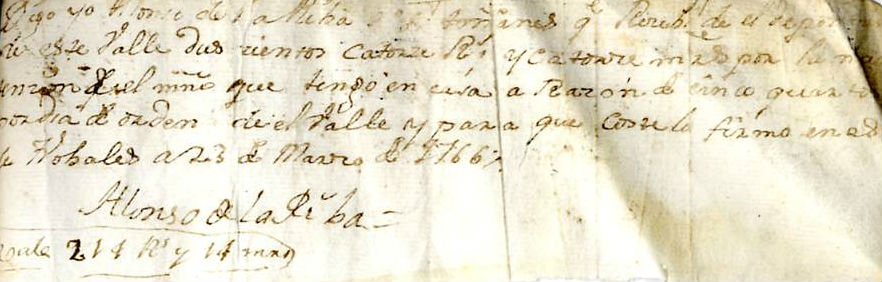 Digo yo Alonso de la Riba que Recibi de el deposi
de este Valle dus cientos Catorze Rs y Catorce mrs por la ma
tenzion de el niño que tengo en casa a Razón de cinco quartos
por dia de orden de el Valle y para que Coste lo firmo en es
de Nohales a 23 de Marzo de 1766
Alonso de la Riba =
Vale 214 Rs y 14 mrs